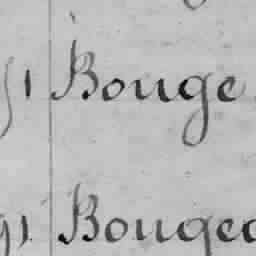 91 Bouge
91 Bougea